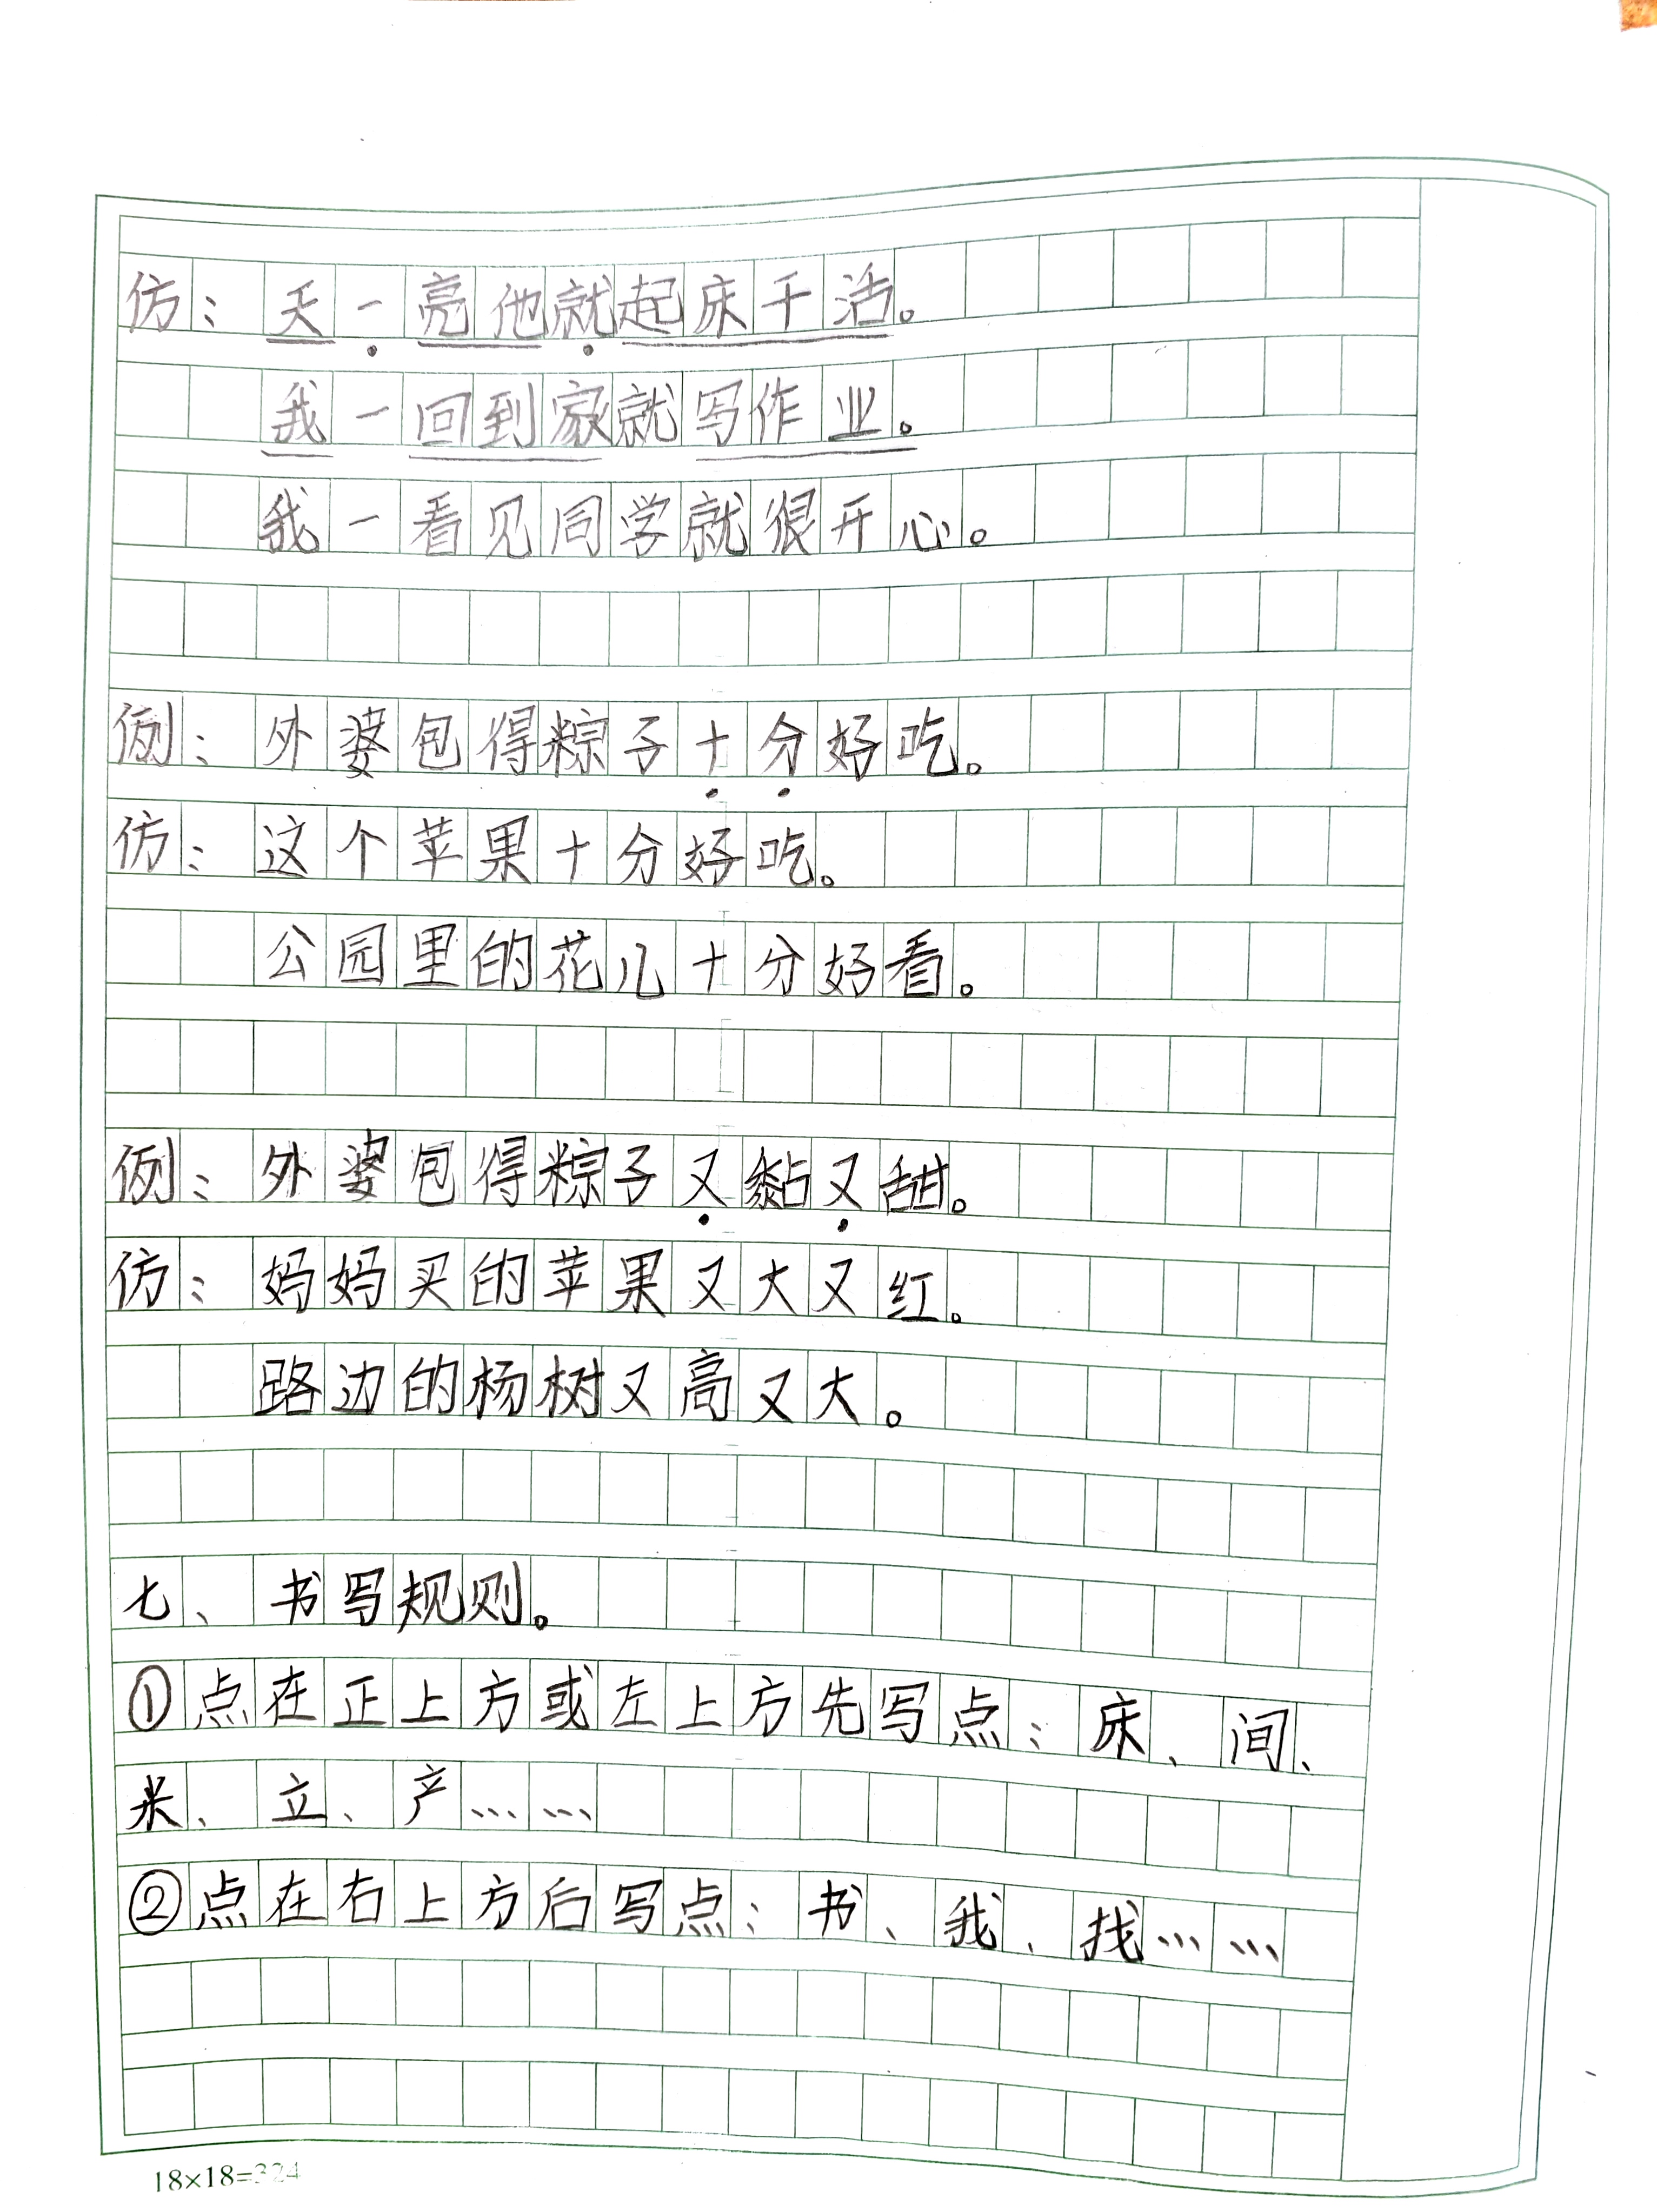 仿：天一亮他就起床干活。
我一回到家就写作业。
我一看见同学就很开心。
例：外婆包得粽子十分好吃。
仿：这个苹果十分好吃。
公园里的花儿十分好看。
例：外婆包得粽子又黏又甜。
仿：妈妈买的苹果又大又红。
路边的杨树又高又大。
七、书写规则。
①点在正上方或左上方先写点：床、间、
米、立、产……
②点在右上方后写点：书、我、找……
18×18=324